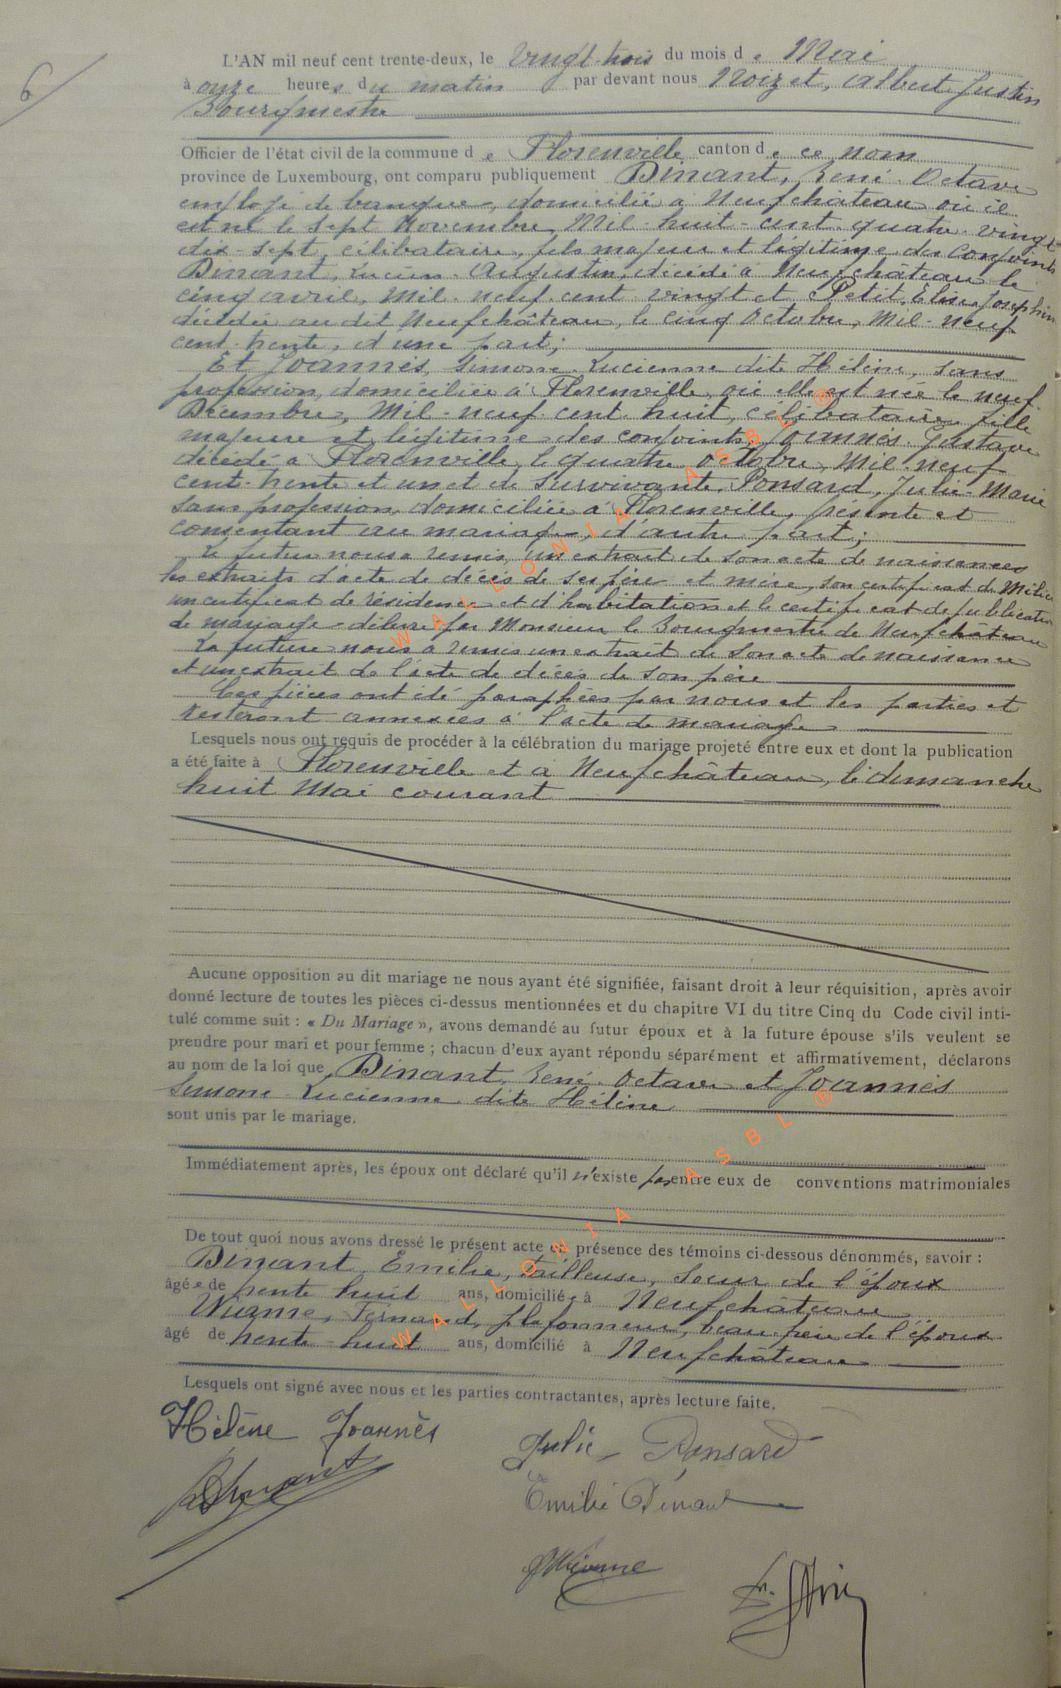 6
L'AN mil neuf cent trente-deux, le vingt-trois du mois de Mai
à onze heures du matin par devant nous Noizet, Albert Justin
Bourgmestre
Officier de l'état civil de la commune de Florenville canton de ce nom
province de Luxembourg, ont comparu publiquement Dinant, René Octave
employé de banque, domicilié à Neufchâteau où il
est né le sept Novembre Mil-huit-cent-quatre-vingt-
dix-sept, célibataire, fils majeur et légitime des conjoints
Dinant, Lucien Augustin, décédé à Neufchâteau le
cinq avril, Mil-neuf cent vingt et Petit, Elise Joséphine
décédée au dit Neufchâteau, le cinq Octobre, Mil-neuf
cent trente, d'une part;
Et Joannès, Simone Lucienne dite Hélène, sans
profession, domiciliée à Florenville, où elle est née le neuf
Décembre, Mil-neuf cent huit, célibataire fille
majeure et légitime des conjoints, Joannès Gustave
décédé à Florenville, le quatre octobre, Mil-neuf
cent-trente et un et de survivante, Ponsard, Julie-Marie
sans profession, domiciliée à Florenville, présente et
consentant au mariage, d'autre part;
Le futur nous a remis, un extrait de son acte de naissances
les extraits d'acte de décès de ses père et mère, son certificat de Milice
un certificat de résidence et d'habitation et le certificat de publication
de mariage délivré par Monsieur le Bourgmestre de Neufchâteau
La future nous a remis un extrait de son acte de naissance
et un extrait de l'acte de décès de son père
Ces pièces ont été paraphées par nous et les parties et
resteront annexées à l'acte de mariage
Lesquels nous ont requis de procéder à la célébration du mariage projeté entre eux et dont la publication
a été faite à Florenville et à Neufchâteau, le dimanche
huit Mai courant
Aucune opposition au dit mariage ne nous ayant été signifiée, faisant droit à leur réquisition, après avoir
donné lecture de toutes les pièces ci-dessus mentionnées et du chapitre VI du titre Cinq du Code civil inti-
tulé comme suit : « Du Mariage », avons demandé au futur époux et à la future épouse s'ils veulent se
prendre pour mari et pour femme ; chacun d'eux ayant répondu séparément et affirmativement, déclarons
au nom de la loi que Dinant, René Octave et Joannès
Simone Lucienne dite Hélène
sont unis par le mariage.
Immédiatement après, les époux ont déclaré qu'il n'existe pas entre eux de conventions matrimoniales
De tout quoi nous avons dressé le présent acte en présence des témoins ci-dessous dénommés, savoir :
Dinant Emilie, tailleuse, soeur de l'époux
âgée de trente huit ans, domiciliée à Neufchâteau
Wiame, Fernand, plafonneur, beau-frère de l'époux
âgé de trente-huit ans, domicilié à Neufchâteau
Lesquels ont signé avec nous et les parties contractantes, après lecture faite.
Hélène Joannès
Julie Ponsard
Dinant
Emilie Dinant
FWiame
WALLONIA ASBL ®
WALLONIA ASBL ®